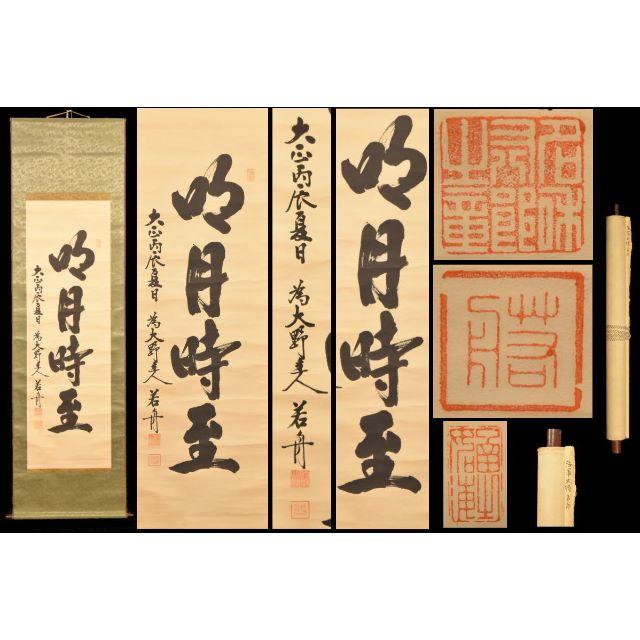 明月時至
大正丙辰夏日 為大野 人 若舟
明月時至
大正丙辰夏日 為大野 人 若舟
大正丙辰夏日 為大野 人 若舟
明月時至
名和又八郎之章